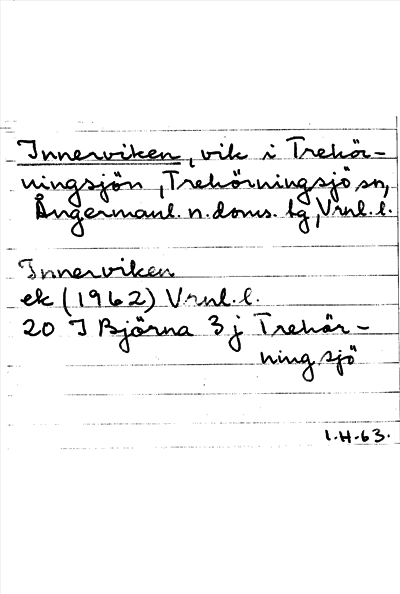 Innerviken, vik i Trehör-
ningsjön, Trehörningsjö sn,
Ångermanl. n. doms. tg, Vrnl. l.
Innerviken
ek (1962) Vrnl. l.
20 I Björna 3 j Trehör-
ningsjö
I.H.63.